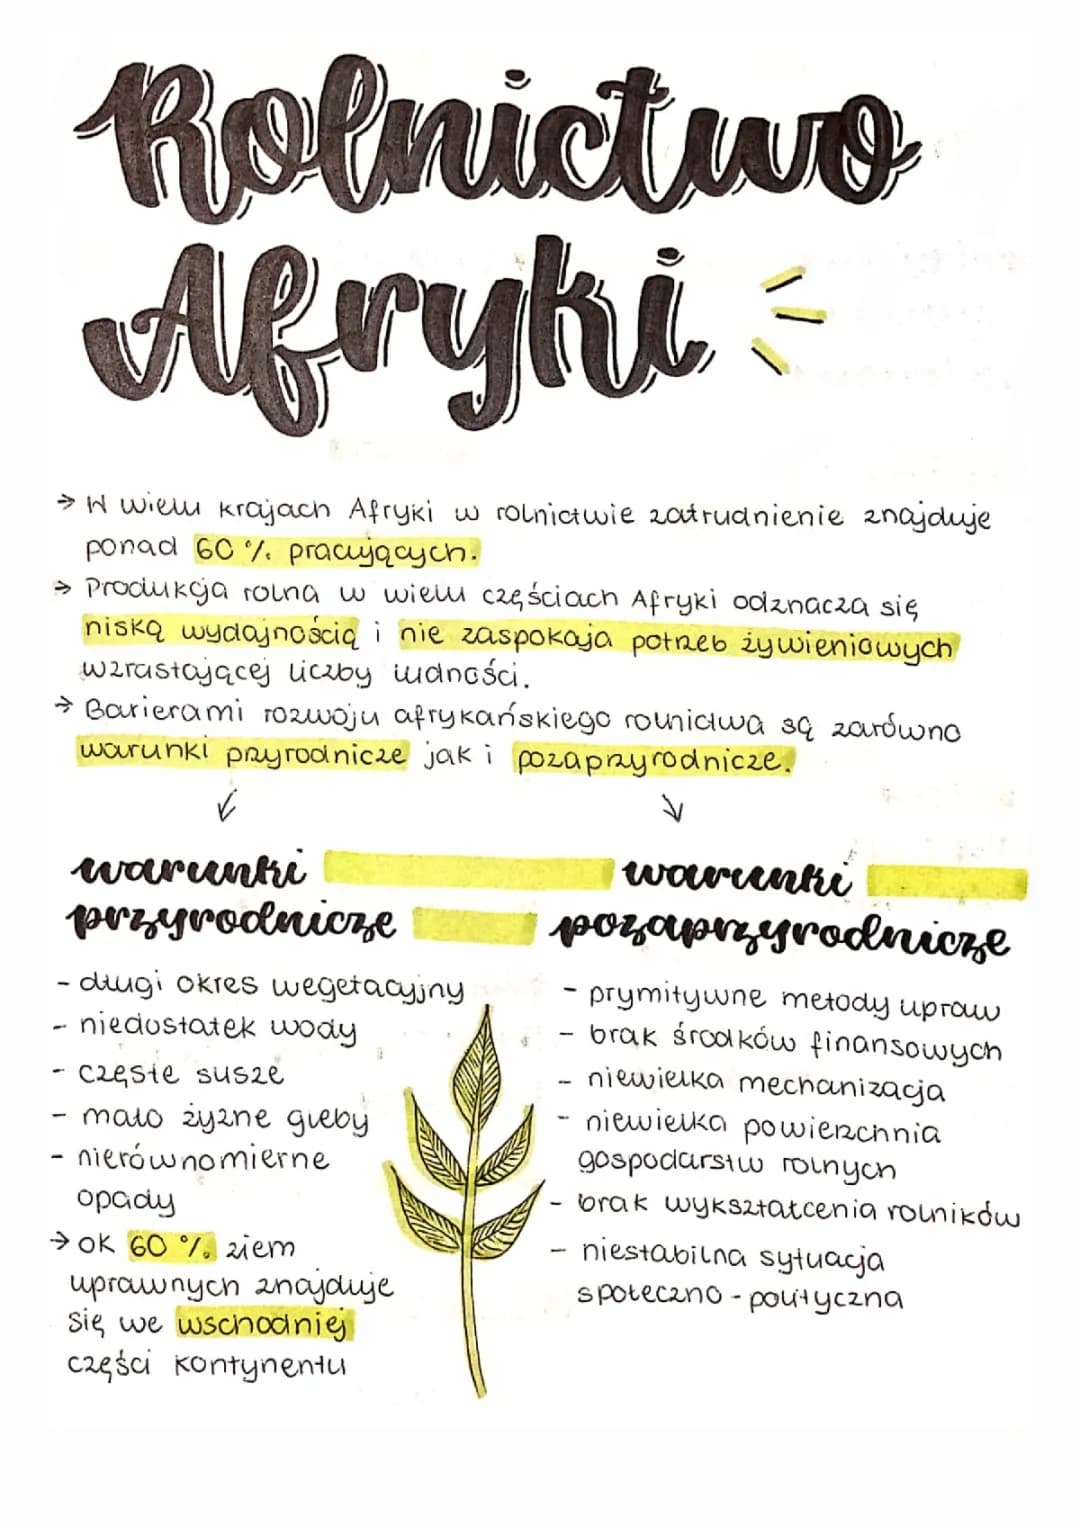 Rolnictwo
Afryki
→ W wielu krajach Afryki w rolnictwie zatrudnienie znajduje
ponad 60 % pracujących.
→ Produkcja rolna w wielu częściach Afryki odznacza się
niską wydajnością i nie zaspokaja potrzeb żywieniowych
wzrastającej liczby ludności.
→ Barierami rozwoju afrykańskiego rolnictwa są zarówno
warunki przyrodnicze jak i pozaprzyrodnicze.
warunki
przyrodnicze
- długi okres wegetacyjny
- niedostatek wody
- częste susze
- mało żyzne gleby
- nierównomierne
opady
→ ok 60 % ziem
uprawnych znajduje
się we wschodniej
części kontynentu
warunki
pozaprzyrodnicze
- prymitywne metody upraw
- brak środków finansowych
- niewielka mechanizacja
- niewielka powierzchnia
gospodarstw rolnych
- brak wykształcenia rolników
- niestabilna sytuacja
społeczno - polityczna